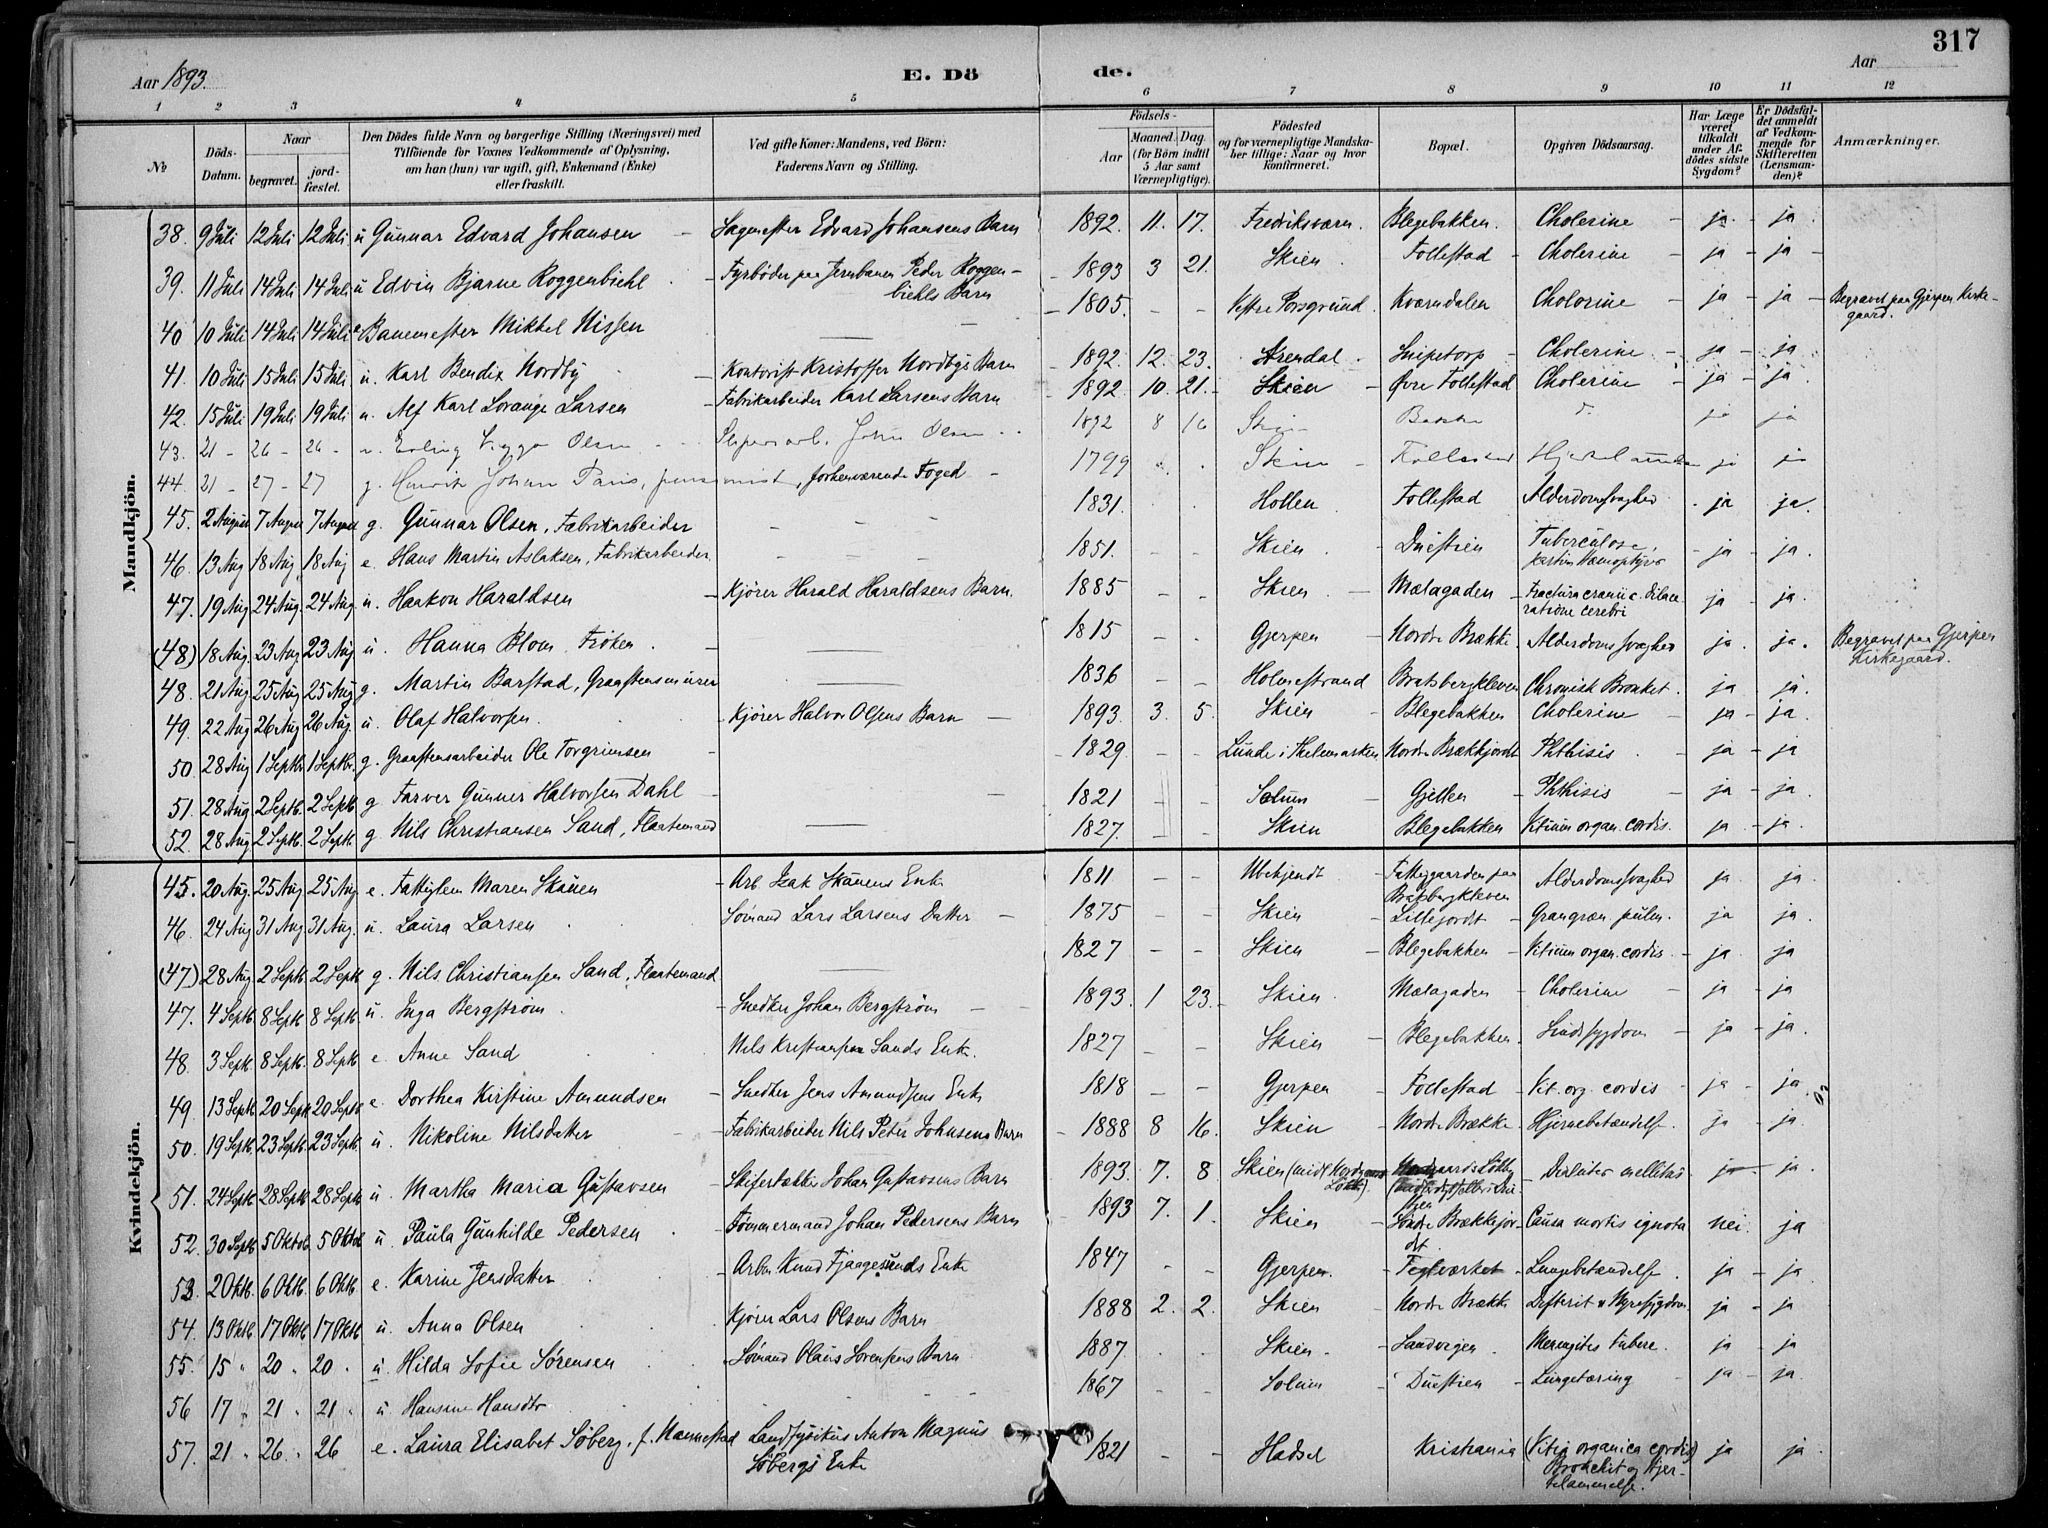 Aar 1893.
E. Dö
de.
Aar
317
1 2 3 4 5 6 7 8 9 10 11 12
No
Döds-Datum.
Naar
begravet.
jord-fæstet.
Den Dödes fulde Navn og borgerlige Stilling (Næringsvei) med
Tilföiende for Voxnes Vedkommende af Oplysning,
om han (hun) var ugift, gift, Enkemand (Enke)
eller fraskilt.
Ved gifte Koner: Mandens, ved Börn:
Faderens Navn og Stilling.
Födsels-
Aar
Maaned. Dag.
(for Börn indtil
5 Aar samt
Værnepligtige).
Födested
og for værnepligtige Mandska-
ber tillige: Naar og hvor
konfirmeret.
Bopæl.
Opgiven Dödsaarsag.
Har Læge
været
tilkaldt
under Af-
dödes sidste
Sygdom?
Er Dödsfal-
det anmeldt
af Vedkom-
mende for
Skifteretten
(Lensman-
den)?
Anmærkninger.
Mandkjön.
38. 9 Juli 12 Juli 12 Juli u Gunnar Edvard Johansen - Sagmester Edvard Johansens Barn 1892. 11. 17. Fredriksværn. Blegebakken. Cholerine - ja - ja
39. 11 Juli 14 Juli 14 Juli u Edvin Bjarne Roggenbiehl - Fyrböder paa Jernbanen Peder Roggen-
biehls Barn - 1893 3 21. Skien. Follestad - Cholerine - ja - ja -
40 10 Juli 14 Juli 14 Juli e Banemester Mikkel Nissen - 1805. - - Vestre Porsgrund. Kværndalen Cholerine - ja - ja - Begravet paa Gjerpen Kirke-
gaard.
41. 10 Juli 15 Juli 15 Juli u. Karl Bendix Nordby - Kontorist Kristoffer Nordbys Barn - 1892. 12. 23. Arendal. Snipetorp - Cholerine - ja - ja
42. 15 Juli 19 Juli 19 Juli u. Alf Karl Lorange Larsen - Fabrikarbeider Karl Larsens Barn - 1892. 10. 21. Skien - Øvre Follestad - Cholerine - ja - ja.
43. 21 - 26 - 26 - u. Erling Viggo Olsen John Olsen 1892 8 16 Skien Bakken d. ja ja
44. 21 - 27 - 27 g. Henrik Johan Paus, pensionist, forhenværende Foged - 1799 Skien - Follestad ja ja
45. 2 August 7 August 7 August g. Gunnar Olsen, Fabrikarbeider - - - 1831. Hollen Follestad Alderdomssvaghed - ja ja.
46. 13 Aug 18 Aug 18 Aug e. Hans Martin Aslaksen, Fabrikarbeider. - - - 1851. - - Skien. - Duestien Tuberculose,
Hæmoptysis - ja - ja.
47. 19 Aug 24 Aug. 24 Aug. u. Haakon Haraldsen - Kjører Harald Haraldsens Barn. 1885 - - Skien. - Mælagaden - Fractura cranii c. dilace-
ratione cerebri ja - ja.
(48) 18 Aug. 23 Aug 23 Aug. u. Hanna Blom, Frøken. - 1815 - - Gjerpen - Nordre Brække. Alderdomssvaghed ja. ja. Begravet paa Gjerpen
Kirkegaard.
48. 21 Aug 25 Aug 25 Aug g. Martin Barstad, Graastensmurer 1836 - - Holmestrand Bratsbergkleven Chronisk Bronket. ja - ja.
49. 22 Aug 26 Aug 26 Aug. u. Olaf Halvorsen. - Kjører Halvor Olsens Barn - 1893. 3. 5. Skien - Blegebakken - Cholerine - ja - ja.
50. 28 Aug 1 Septb. 1 Septb. g. Graastensarbeider Ole Torgrimsen - - 1829 - - Lunde i Thelemarken Nordre Brækkejordet - Phthisis. - ja - ja
51. 28 Aug 2 Septb. 2 Septb. g Farver Gunner Halvorsen Dahl - - 1821 - - Solum - Gjellen - Phthisis - ja - ja.
52. 28 Aug 2 Septb. 2 Septb. g Nils Christiansen Sand, Flaatemand 1827. - - Skien Blegebakken Vitium organ. cordis. ja - ja.
Kvindekjön.
45. 20 Aug. 25 Aug 25 Aug e. Fattiglem Maren Skauen - Arb. Isak Skauens Enke 1811 - - Ubekjendt. - Fattiggaarden paa
Bratsbergkleven Alderdomssvaghed ja. ja.
46. 24 Aug 31 Aug 31 Aug. u. Laura Larsen Sømand Lars Larsens Datter - 1875 - - Skien - Lillejordet - Grangræn. pulm. ja ja.
(47) 28 Aug 2 Septb 2 Septb g. Nils Christiansen Sand, Flaatemand 1827 - - Skien - Blegebakken - Vitium organ. cordis. - ja ja
47. 4 Septb. 8 Septb. 8 Septb. u. Inga Bergstrøm. - Snedker Johan Bergstrøm - 1893. 1 23. - Skien. Mælagaden - Cholerine - ja - ja
48. 3 Septb. 8 Septb. 8 Septb. e. Anne Sand Nils Kristiansen Sands Enke. 1827 - - Skien - Blegebakken. Sindssygdom - ja - ja.
49. 13 Septb. 20 Septb 20 Septb e. Dorthea Kirstine Amundsen - Snedker Jens Amundsens Enke 1818 - - Gjerpen - Follestad - Vit. org. cordis - ja - ja
50. 19 Septb. 23 Septb. 23 Septb. u. Nikoline Nilsdatter - Fabrikarbeider Nils Peter Johnsens Barn - 1888 8 16. Skien Nordre Brække Hjernebetændelse. ja - ja.
51. 24 Septb 28 Septb 28 Septb u. Martha Maria Gustavsen Skifertækker Johan Gustavsens Barn 1893. 7. 8 Skien - mellitus - ja - ja.
52. 30 Septb. 5 Oktob. 5 Oktob u. Paula Gunhilde Pedersen Tømmermand Johan Pedersens Barn 1893 7. 1. Skien Søndre Brækkejor-
det. - Causa mortis ignota nei. ja
53. 2 Oktb. 6 Oktb. 6 Oktb e. Karine Jensdatter - Arbr. Knud Fjaagesunds Enke 1847 - - Gjerpen. - Teglværket - Lungebetændelse. ja - ja
54. 13 Oktb. 17 Oktb 17 Oktb u. Anna Olsen Kjører Lars Olsens Barn 1888 2. 2. Skien Nordre Brække Difterit & Nyresygdom ja - ja
55. 15 " 20 " 20 " u. Hilda Sofie Sørensen Sømand Olaus Sorensens Barn 1887. Skien. Landvigen. Meningitis tuberc. ja - ja
56 17 " 21 " 21 " u Hansine Hansdtr 1867 - - Solum Duestien - Lungetæring - ja - ja.
57. 21 " 26 " 26 e. Laura Elisabet Søberg, f. Mannestad Landfysikus Anton Magnus
Søbergs Enke 1821 - - Hadsel Kristiania (Vitia organica cordis)
Bronchit og Hjer-
telammelse. ja ja.